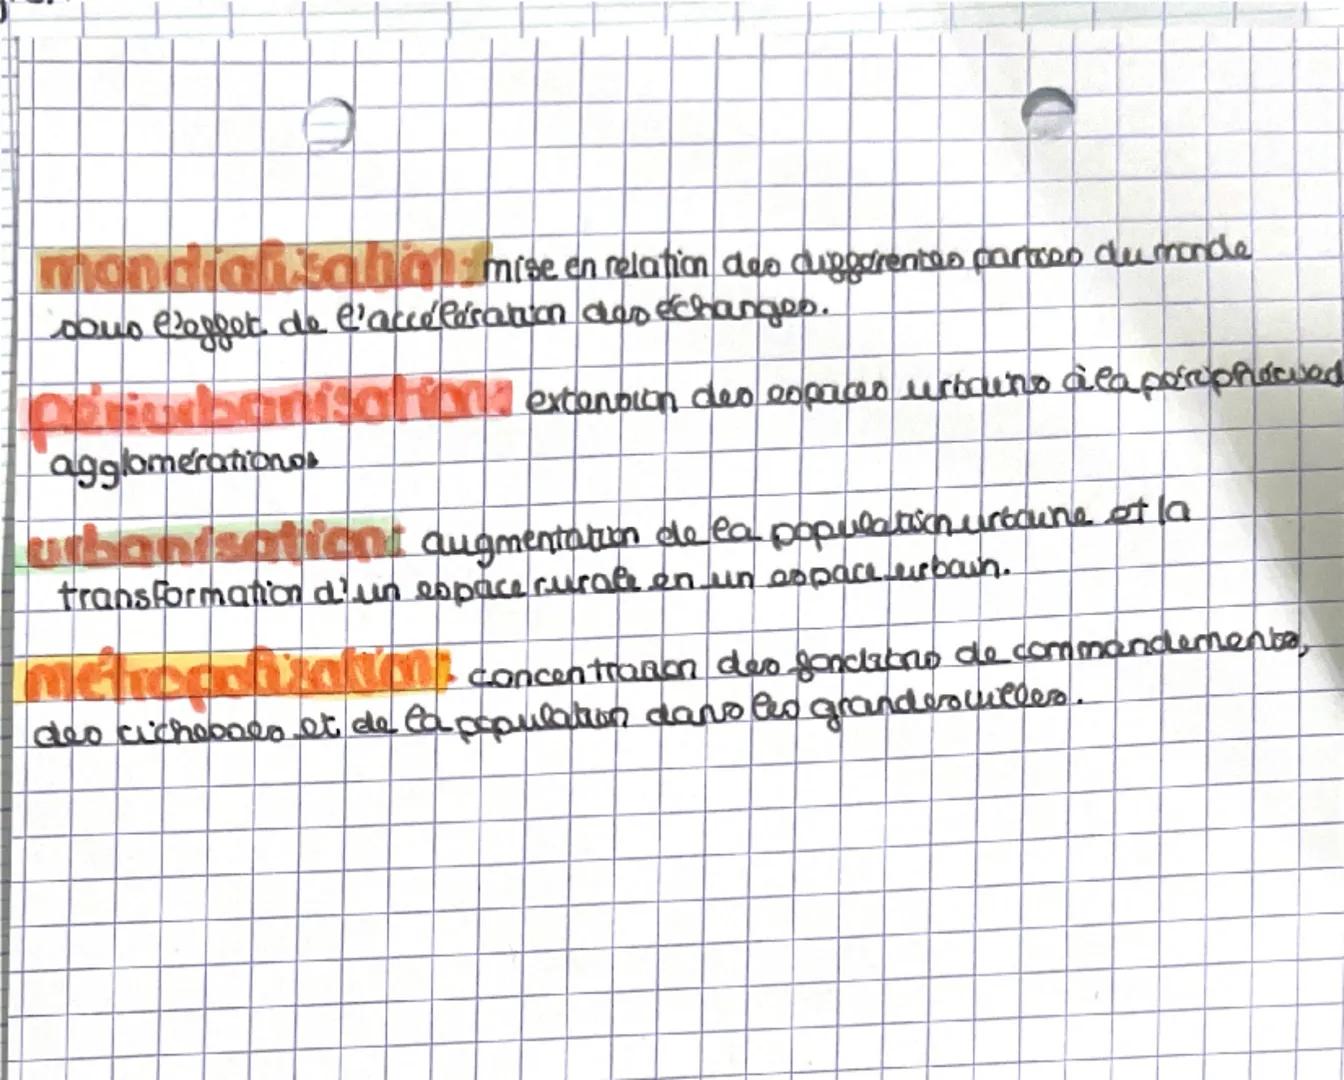 mondialisation: mise en relation des différentes parties du monde
sous l'effet de l'accélération des échanges.
périurbanisation: extension des espaces urbains à la périphérie d
agglomérations
urbanisation: augmentation de la population urbaine et la
transformation d'un espace rurale en un espace urbain.
métropolisation: concentration des fonctions de commandements,
des richesses et de la population dans les grandes villes.